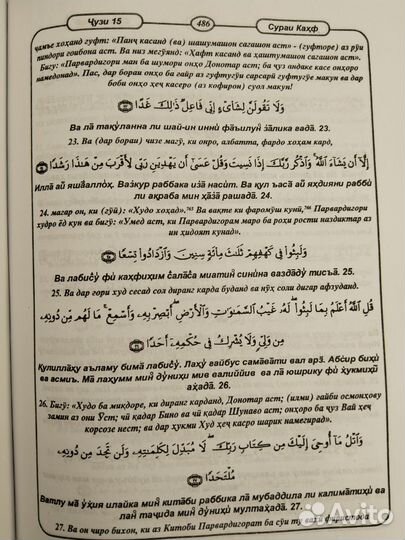 Ҷузи 15
486
Сураи Каҳф
ҷамъе хоҳанд гуфт: "Панҷ касанд (ва) шашумашон сагашон аст" - (гуфторе) аз рӯи
пиндори ғоибона аст. Ва низ мегӯянд: "Ҳафт касанд ва ҳаштумашон сагашон аст".
Бигу: "Парвардигори ман ба шумори онҳо Донотар аст; ба ҷуз андаке касе онҳоро
намедонад». Пас, дар бораи онҳо ба ғайр аз гуфтугӯи сарсарӣ гуфтугӯй макун ва дар
боби онҳо ҳеҷ касеро (аз кофирон) суол макун!
وَلَا تَقُولَنَّ لِشَا۟ىْءٍ إِنِّى فَاعِلٌ ذَٰلِكَ غَدًا ﴿٢٣﴾
Ва ла̄ тақӯланна ли шай-ин иннӣ фаъилун̃ з̱а̄лика ғада̄. 23.
23. Ва (дар бораи) чизе магӯ, ки онро, албатта, фардо хоҳам кард,
إِلَّآ أَن يَشَآءَ ٱللَّهُ ۚ وَٱذْكُر رَّبَّكَ إِذَا نَسِيتَ وَقُلْ عَسَىٰٓ أَن يَهْدِيَنِ رَبِّى لِأَقْرَبَ مِنْ هَـٰذَا رَشَدًا ﴿٢٤﴾
Илла̄ ай яшаАллоҳ. Ваз̱кур раббака из̱а̄ насӣт. Ва қул ъаса̄ ай яҳдияни раббӣ
ли ақраба мин ҳа̄з̱а̄ рашада̄. 24.
24. магар он, ки (гӯӣ): «Худо хоҳад».⁷⁶⁵ Ва вақте ки фаромӯш кунӣ,⁷⁶⁶ Парвардигори
худро ёд кун ва бигӯ: "Умед аст, ки Парвардигорам маро ба роҳи рости наздиктар аз
ин ҳидоят кунад».
وَلَبِثُوا۟ فِى كَهْفِهِمْ ثَلَـٰثَ مِا۟ئَةٍ سِنِينَ وَٱزْدَادُوا۟ تِسْعًا ﴿٢٥﴾
Ва лабис̱ӯ фӣ каҳфиҳим с̱ала̄с̱а миатин̃ синӣна ваздадӯ тисъа̄. 25.
25. Ва дар ғори худ сесад сол диранг карда буданд ва нӯҳ соли дигар афзуданд.
قُلِ ٱللَّهُ أَعْلَمُ بِمَا لَبِثُوا۟ ۖ لَهُۥ غَيْبُ ٱلسَّمَـٰوَٰتِ وَٱلْأَرْضِ ۖ أَبْصِرْ بِهِۦ وَأَسْمِعْ ۚ مَا لَهُم مِّن دُونِهِۦ
مِن وَلِىٍّ وَلَا يُشْرِكُ فِى حُكْمِهِۦٓ أَحَدًا ﴿٢٦﴾
Қулиллаҳу аъламу бима̄ лабис̱ӯ. Лаҳӯ ғайбус сама̄ва̄ти вал арз̣. Абс̣ир биҳӣ
ва асмиъ. Ма̄ лаҳумм мин̃ дӯниҳӣ мив валиййив ва ла̄ юшрику фӣ ҳукмиҳӣ
аҳада̄. 26.
26. Бигӯ: "Худо ба миқдоре, ки диранг карданд, Донотар аст; (илми) ғайби осмонҳову
замин аз они Ӯст; чӣ қадар Бино ва чӣ қадар Шунаво аст; онҳоро ба ҷуз Вай ҳеҷ
корсозе нест; ва дар ҳукми Худ ҳеҷ касро шарик намегирад».
وَٱتْلُ مَآ أُوحِىَ إِلَيْكَ مِن كِتَابِ رَبِّكَ ۖ لَا مُبَدِّلَ لِكَلِمَـٰتِهِۦ وَلَن تَجِدَ مِن دُونِهِۦ
مُلْتَحَدًا ﴿٢٧﴾
Ватлу ма̄ ӯҳия илайка мин̃ кита̄би раббика ла̄ мубаддила ли калима̄тиҳӣ ва
лан̃ таҷида мин̃ дӯниҳӣ мултаҳада̄. 27.
27. Ва он чиро бихон, ки аз Китоби Парвардигорат ба сӯи ту ваҳй фиристода
Avito